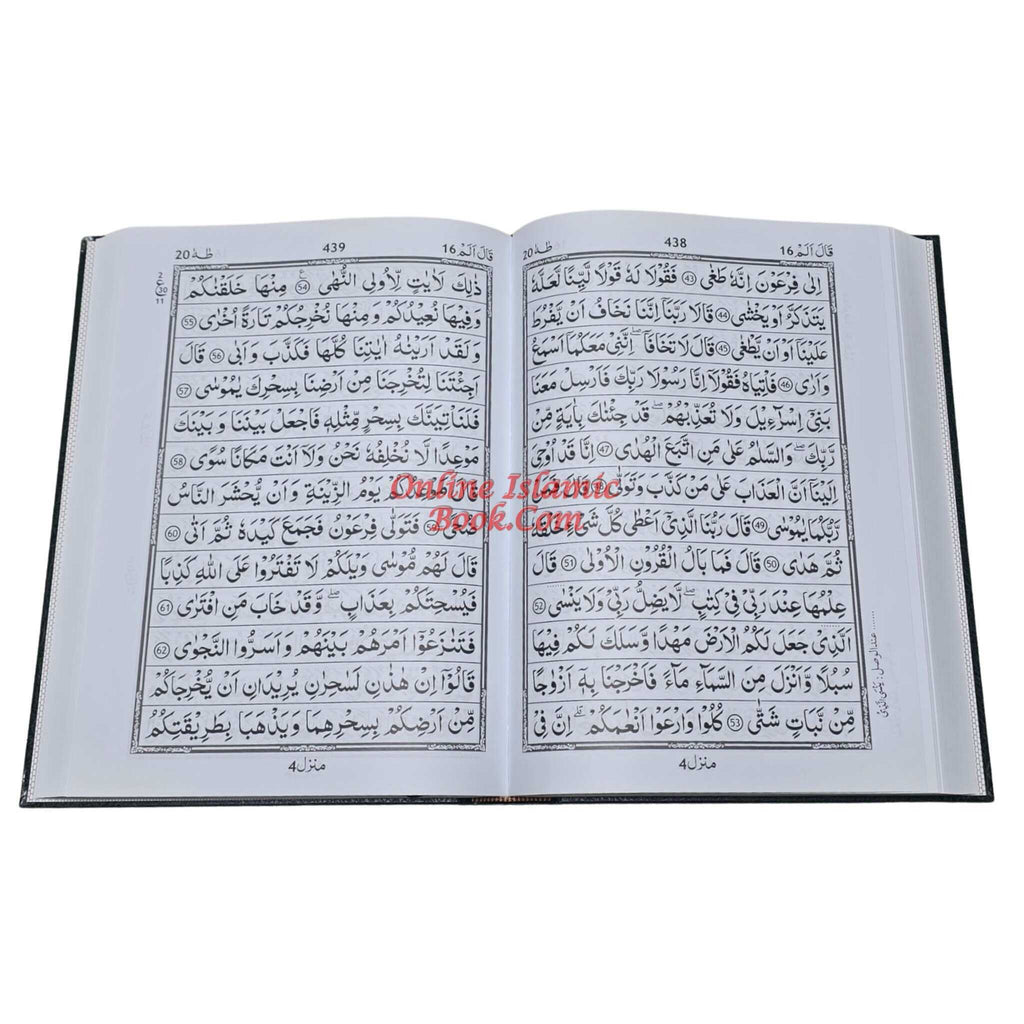 قَالَ اَلَمْ 16
438
طٰهٰ 20
اِلٰى فِرْعَوْنَ اِنَّهٗ طَغٰى ۝43 فَقُوْلَا لَهٗ قَوْلًا لَّيِّنًا لَّعَلَّهٗ
يَتَذَكَّرُ اَوْ يَخْشٰى ۝44 قَالَا رَبَّنَاۤ اِنَّنَا نَخَافُ اَنْ يَّفْرُطَ
عَلَيْنَاۤ اَوْ اَنْ يَّطْغٰى ۝45 قَالَ لَا تَخَافَاۤ اِنَّنِيْ مَعَكُمَاۤ اَسْمَعُ
وَاَرٰى ۝46 فَاْتِيٰهُ فَقُوْلَاۤ اِنَّا رَسُوْلَا رَبِّكَ فَاَرْسِلْ مَعَنَا
بَنِيْۤ اِسْرَآءِيْلَ وَلَا تُعَذِّبْهُمْ ؕ قَدْ جِئْنٰكَ بِاٰيَةٍ مِّنْ
رَّبِّكَ ؕ وَالسَّلٰمُ عَلٰى مَنِ اتَّبَعَ الْهُدٰى ۝47 اِنَّا قَدْ اُوْحِيَ
اِلَيْنَاۤ اَنَّ الْعَذَابَ عَلٰى مَنْ كَذَّبَ وَتَوَلّٰى ۝48 قَالَ فَمَنْ
رَّبُّكُمَا يٰمُوْسٰى ۝49 قَالَ رَبُّنَا الَّذِيْۤ اَعْطٰى كُلَّ شَيْءٍ خَلْقَهٗ
ثُمَّ هَدٰى ۝50 قَالَ فَمَا بَالُ الْقُرُوْنِ الْاُوْلٰى ۝51 قَالَ
عِلْمُهَا عِنْدَ رَبِّيْ فِيْ كِتٰبٍ ۚ لَا يَضِلُّ رَبِّيْ وَلَا يَنْسَى ۝52
الَّذِيْ جَعَلَ لَكُمُ الْاَرْضَ مَهْدًا وَّسَلَكَ لَكُمْ فِيْهَا
سُبُلًا وَّاَنْزَلَ مِنَ السَّمَآءِ مَآءً فَاَخْرَجْنَا بِهٖۤ اَزْوَاجًا
مِّنْ نَّبَاتٍ شَتّٰى ۝53 كُلُوْا وَارْعَوْا اَنْعَامَكُمْ ؕ اِنَّ فِيْ
منزل 4
قَالَ اَلَمْ 16
439
طٰهٰ 20
ذٰلِكَ لَاٰيٰتٍ لِّاُولِي النُّهٰى ۝54 مِنْهَا خَلَقْنٰكُمْ
وَفِيْهَا نُعِيْدُكُمْ وَمِنْهَا نُخْرِجُكُمْ تَارَةً اُخْرٰى ۝55
وَلَقَدْ اَرَيْنٰهُ اٰيٰتِنَا كُلَّهَا فَكَذَّبَ وَاَبٰى ۝56 قَالَ
اَجِئْتَنَا لِتُخْرِجَنَا مِنْ اَرْضِنَا بِسِحْرِكَ يٰمُوْسٰى ۝57
فَلَنَاْتِيَنَّكَ بِسِحْرٍ مِّثْلِهٖ فَاجْعَلْ بَيْنَنَا وَبَيْنَكَ
مَوْعِدًا لَّا نُخْلِفُهٗ نَحْنُ وَلَاۤ اَنْتَ مَكَانًا سُوًى ۝58
قَالَ مَوْعِدُكُمْ يَوْمُ الزِّيْنَةِ وَاَنْ يُّحْشَرَ النَّاسُ
ضُحًى ۝59 فَتَوَلّٰى فِرْعَوْنُ فَجَمَعَ كَيْدَهٗ ثُمَّ اَتٰى ۝60
قَالَ لَهُمْ مُّوْسٰى وَيْلَكُمْ لَا تَفْتَرُوْا عَلَى اللهِ كَذِبًا
فَيُسْحِتَكُمْ بِعَذَابٍ ۚ وَقَدْ خَابَ مَنِ افْتَرٰى ۝61
فَتَنَازَعُوْۤا اَمْرَهُمْ بَيْنَهُمْ وَاَسَرُّوا النَّجْوٰى ۝62
قَالُوْۤا اِنْ هٰذٰنِ لَسٰحِرٰنِ يُرِيْدٰنِ اَنْ يُّخْرِجٰكُمْ
مِّنْ اَرْضِكُمْ بِسِحْرِهِمَا وَيَذْهَبَا بِطَرِيْقَتِكُمُ
منزل 4
2
ع
30
11
Online Islamic
Book.Com